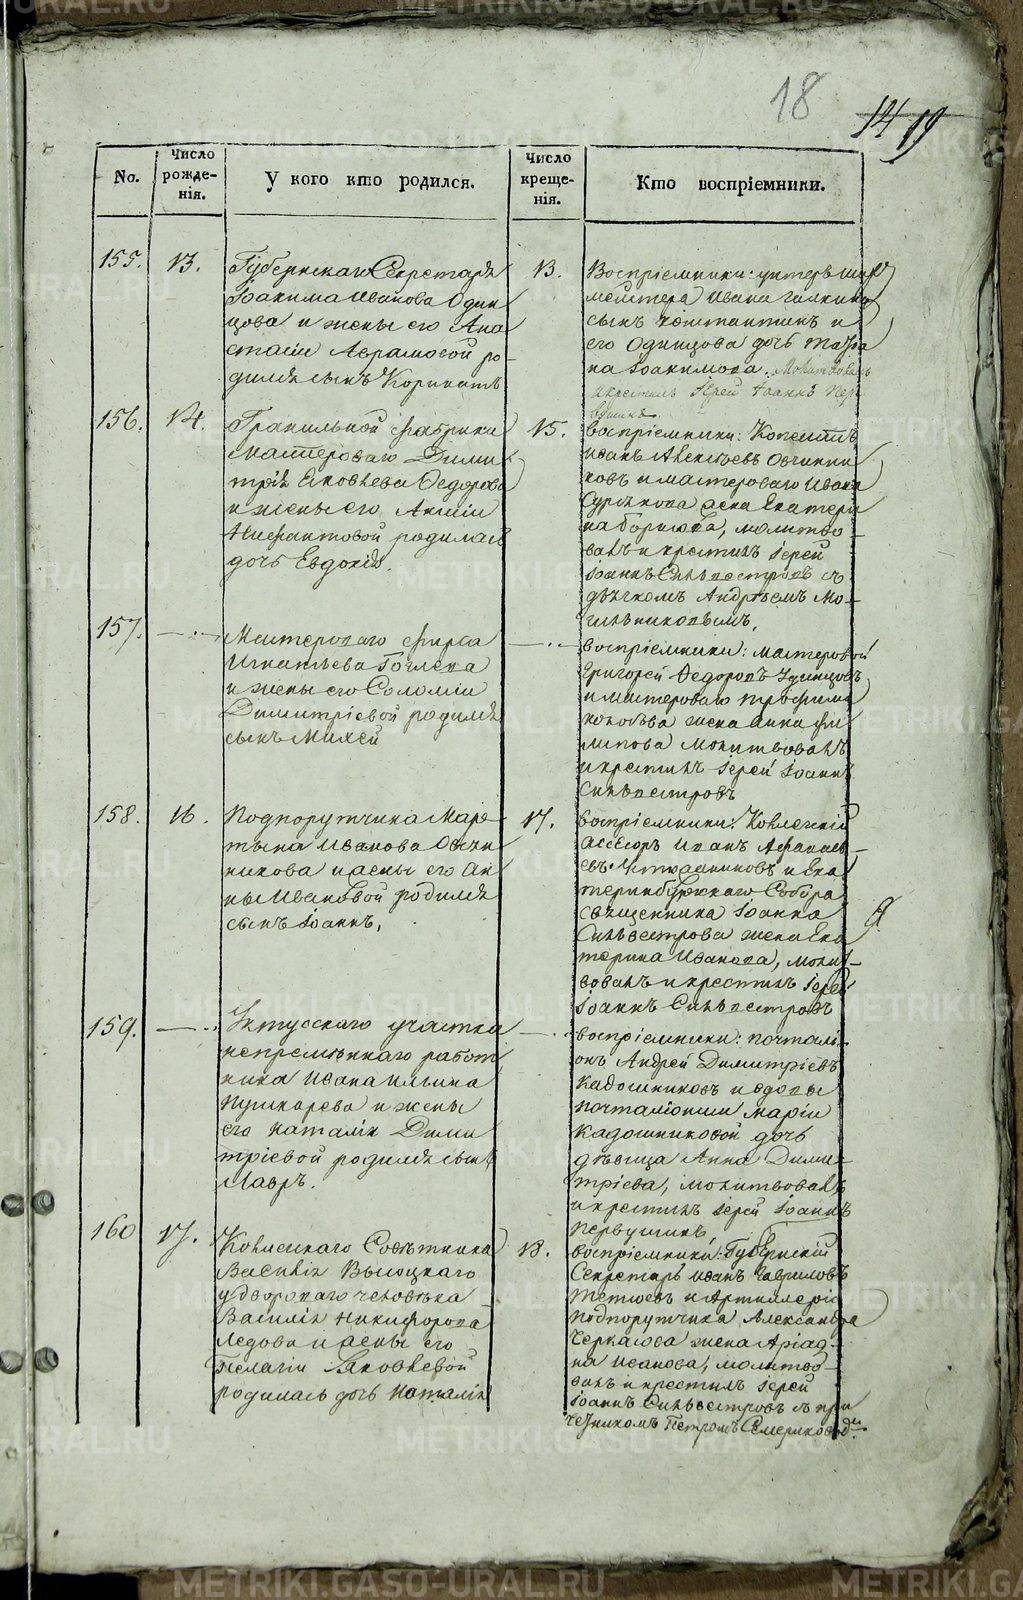 18
14 19
No.
Число рожде-
нія.
У кого кто родился.
Число
креще-
нія.
Кто воспріемники.
155. 13.
Губернскаго Секретаря
Іоакима Иванова Один
цова и жены его Ана
стасіи Аврамовой ро-
дился сынъ
13.
Воспріемники: унтеръ
мейстера Ивана Галкина
сынъ Константинъ и
его Одинцова дочь Татіа
на Іоакимова. Молитвовалъ
и крестилъ Іерей Іоаннъ Пер
вушинъ
156. 14.
Гранильной фабрики
мастероваго Дими
трія Яковлева Федорова
и жены его Аксиніи
родилась
дочь Евдокія.
15.
Воспріемники:
Иванъ Алексѣевъ Овчинни
ковъ и мастероваго Ивана
жена Екатери
на Борисова, молитво-
валъ и крестилъ Іерей
Іоаннъ Сильвестровъ съ
дьячкомъ Андреемъ Мо-
гильниковымъ.
157.
Мастероваго Фирса
Игнатьева
и жены его Соломіи
Димитріевой родился
сынъ Михей
воспріемники: мастеровой
Григорей Федоровъ Одинцовъ
и мастероваго Трофима
жена Анна Фи
липова молитвовалъ
и крестилъ Іерей Іоаннъ
Сильвестровъ
158. 16.
Подпорутчика Мар-
тына Иванова Овчин
никова и жены его Ан
ны Ивановой родился
сынъ Іоаннъ.
17.
Воспріемники: Коллежскій
Ассесоръ Иванъ Афанасье-
въ и Ека
теринбургскаго Собора
священника Іоанна
Сильвестрова жена Ека
терина Иванова, молит-
вовалъ и крестилъ Іерей
Іоаннъ Сильвестровъ
159.
Уктусскаго участка
непремѣннаго работ
ника Ивана Ильина
Пушкарева и жены
его Наталіи Дими
тріевой родился сынъ
Лавръ.
воспріемники: почталі-
онъ Андрей Димитріевъ
Кадошниковъ и вдовы
почталіонши Маріи
Кадошниковой дочь
дѣвица Анна Дими-
тріева, молитвовалъ
и крестилъ Іерей Іоаннъ
Первушинъ,
160 17.
Коллежскаго Совѣтника
Василія Высоцкаго
у двороваго человѣка
Василія Никифорова
Ледова и жены его
Пелагіи Яковлевой
родилась дочь Наталія
18.
Воспріемники: Губернскій
Секретарь Иванъ Гавриловъ
и Артиллеріи
подпорутчика Александра
Черкасова жена Аріад-
на Иванова, молитво-
валъ и крестилъ Іерей
Іоаннъ Сильвестровъ съ при
четникомъ Петромъ
METRIKI.GASO-URAL.RU